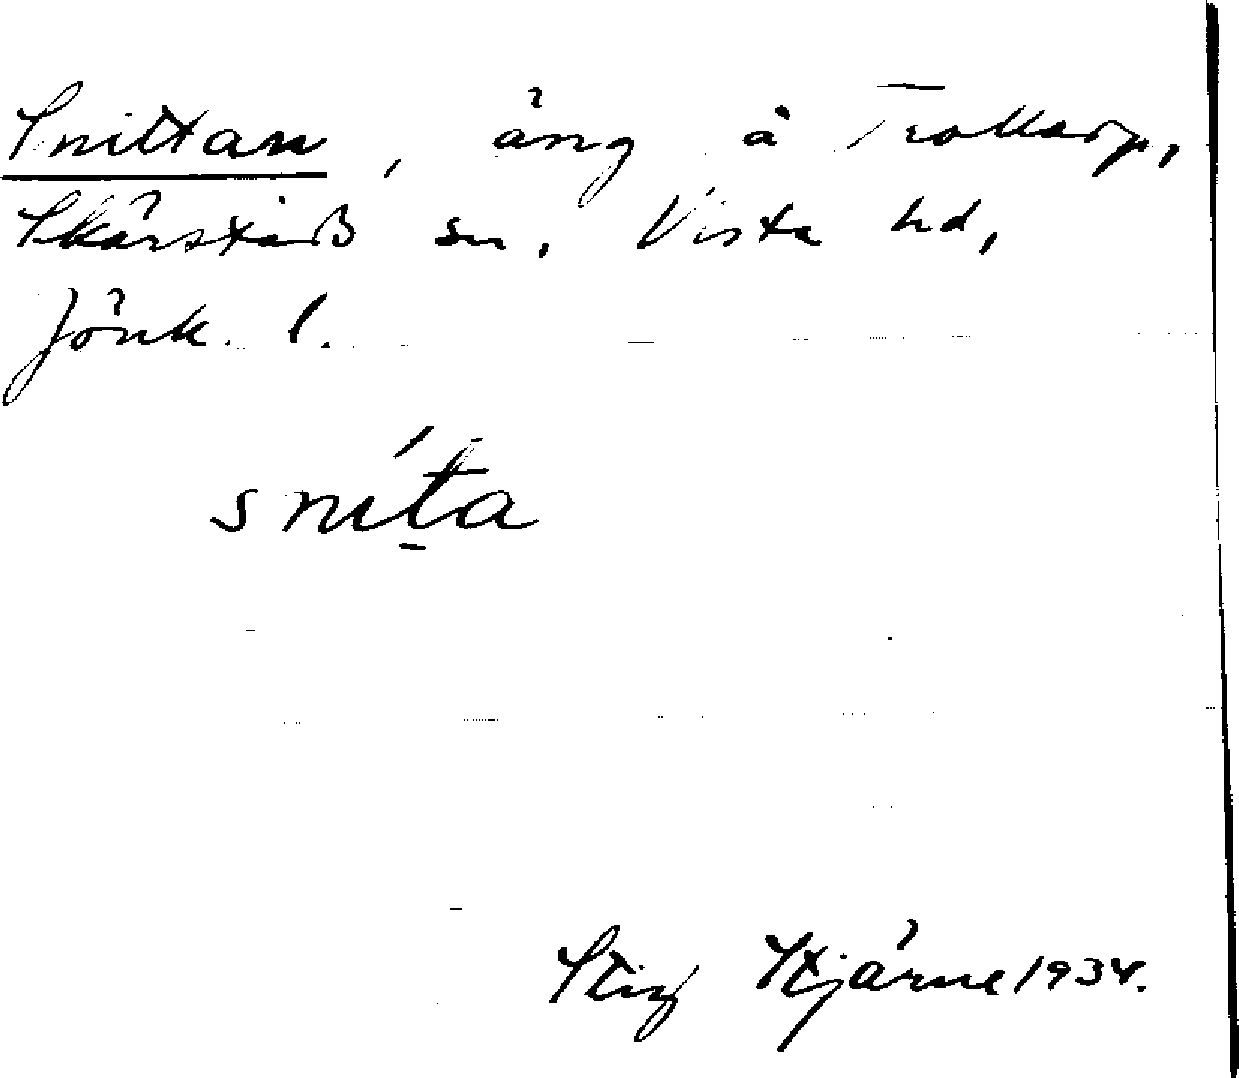 Snittan, äng å Trollarp,
Skärstads sn, Vista hd,
Jönk. l.
sníta
Stig Stjärne 1934.